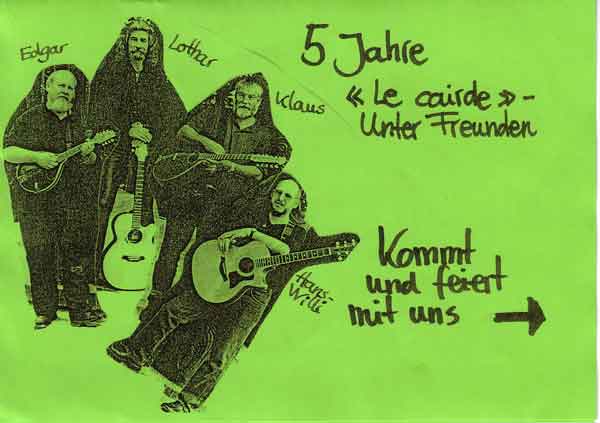 Edgar
Lothar
Klaus
Hans-
Willi
5 Jahre
« Le cairde » -
Unter Freunden
Kommt
und feiert
mit uns